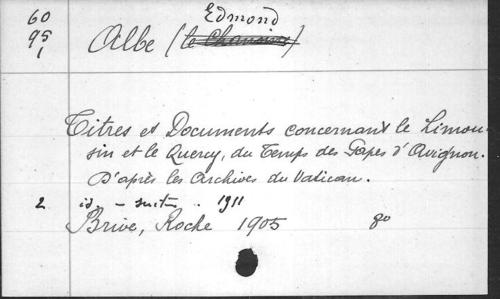 60 Edmond
95 Albe (le Chanoine)
1
Titres et Documents concernant le Limou-
sin et le Quercy, du Temps des Papes d'Avignon.
D'après les Archives du Vatican.
2 id. – suite . 1911
Brive, Roche 1905 8o